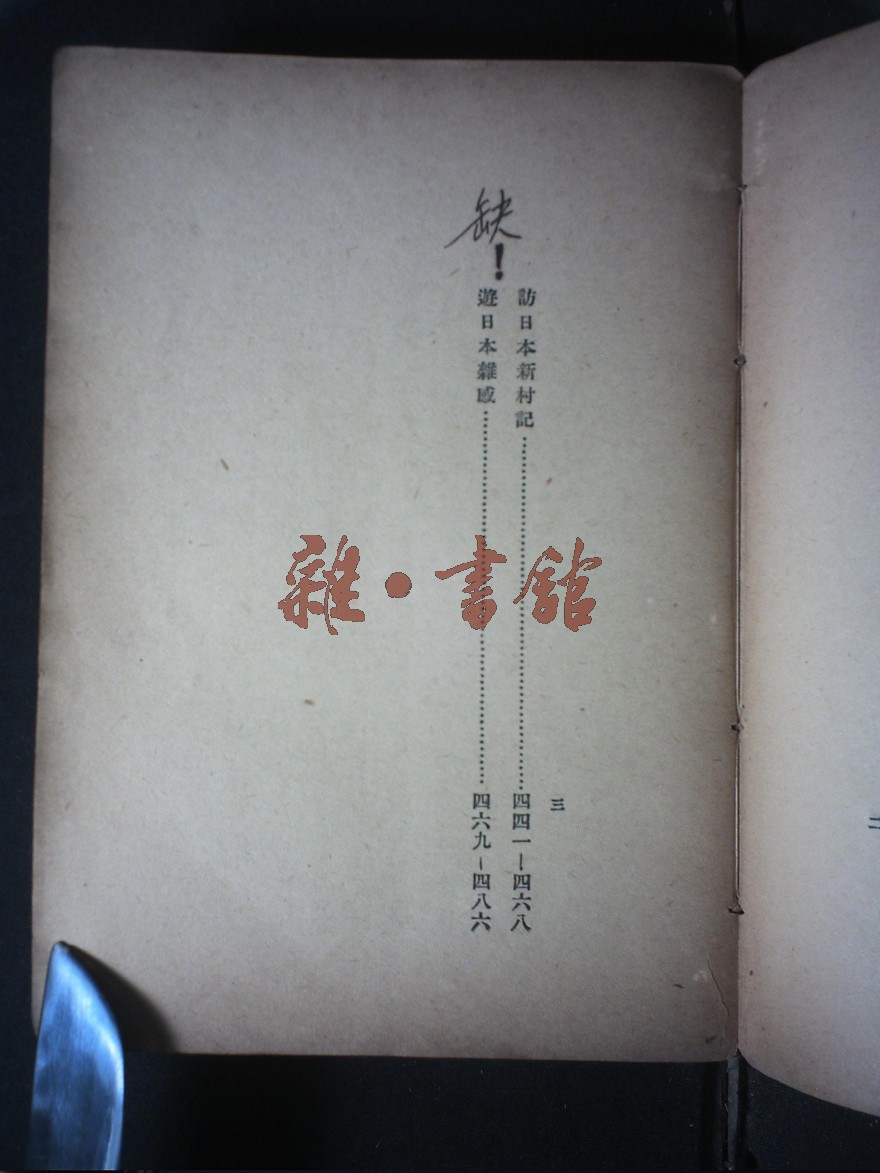 三
訪日本新村記……四四一—四六八
缺！
遊日本雜感……四六九—四八六
雜·書館
二